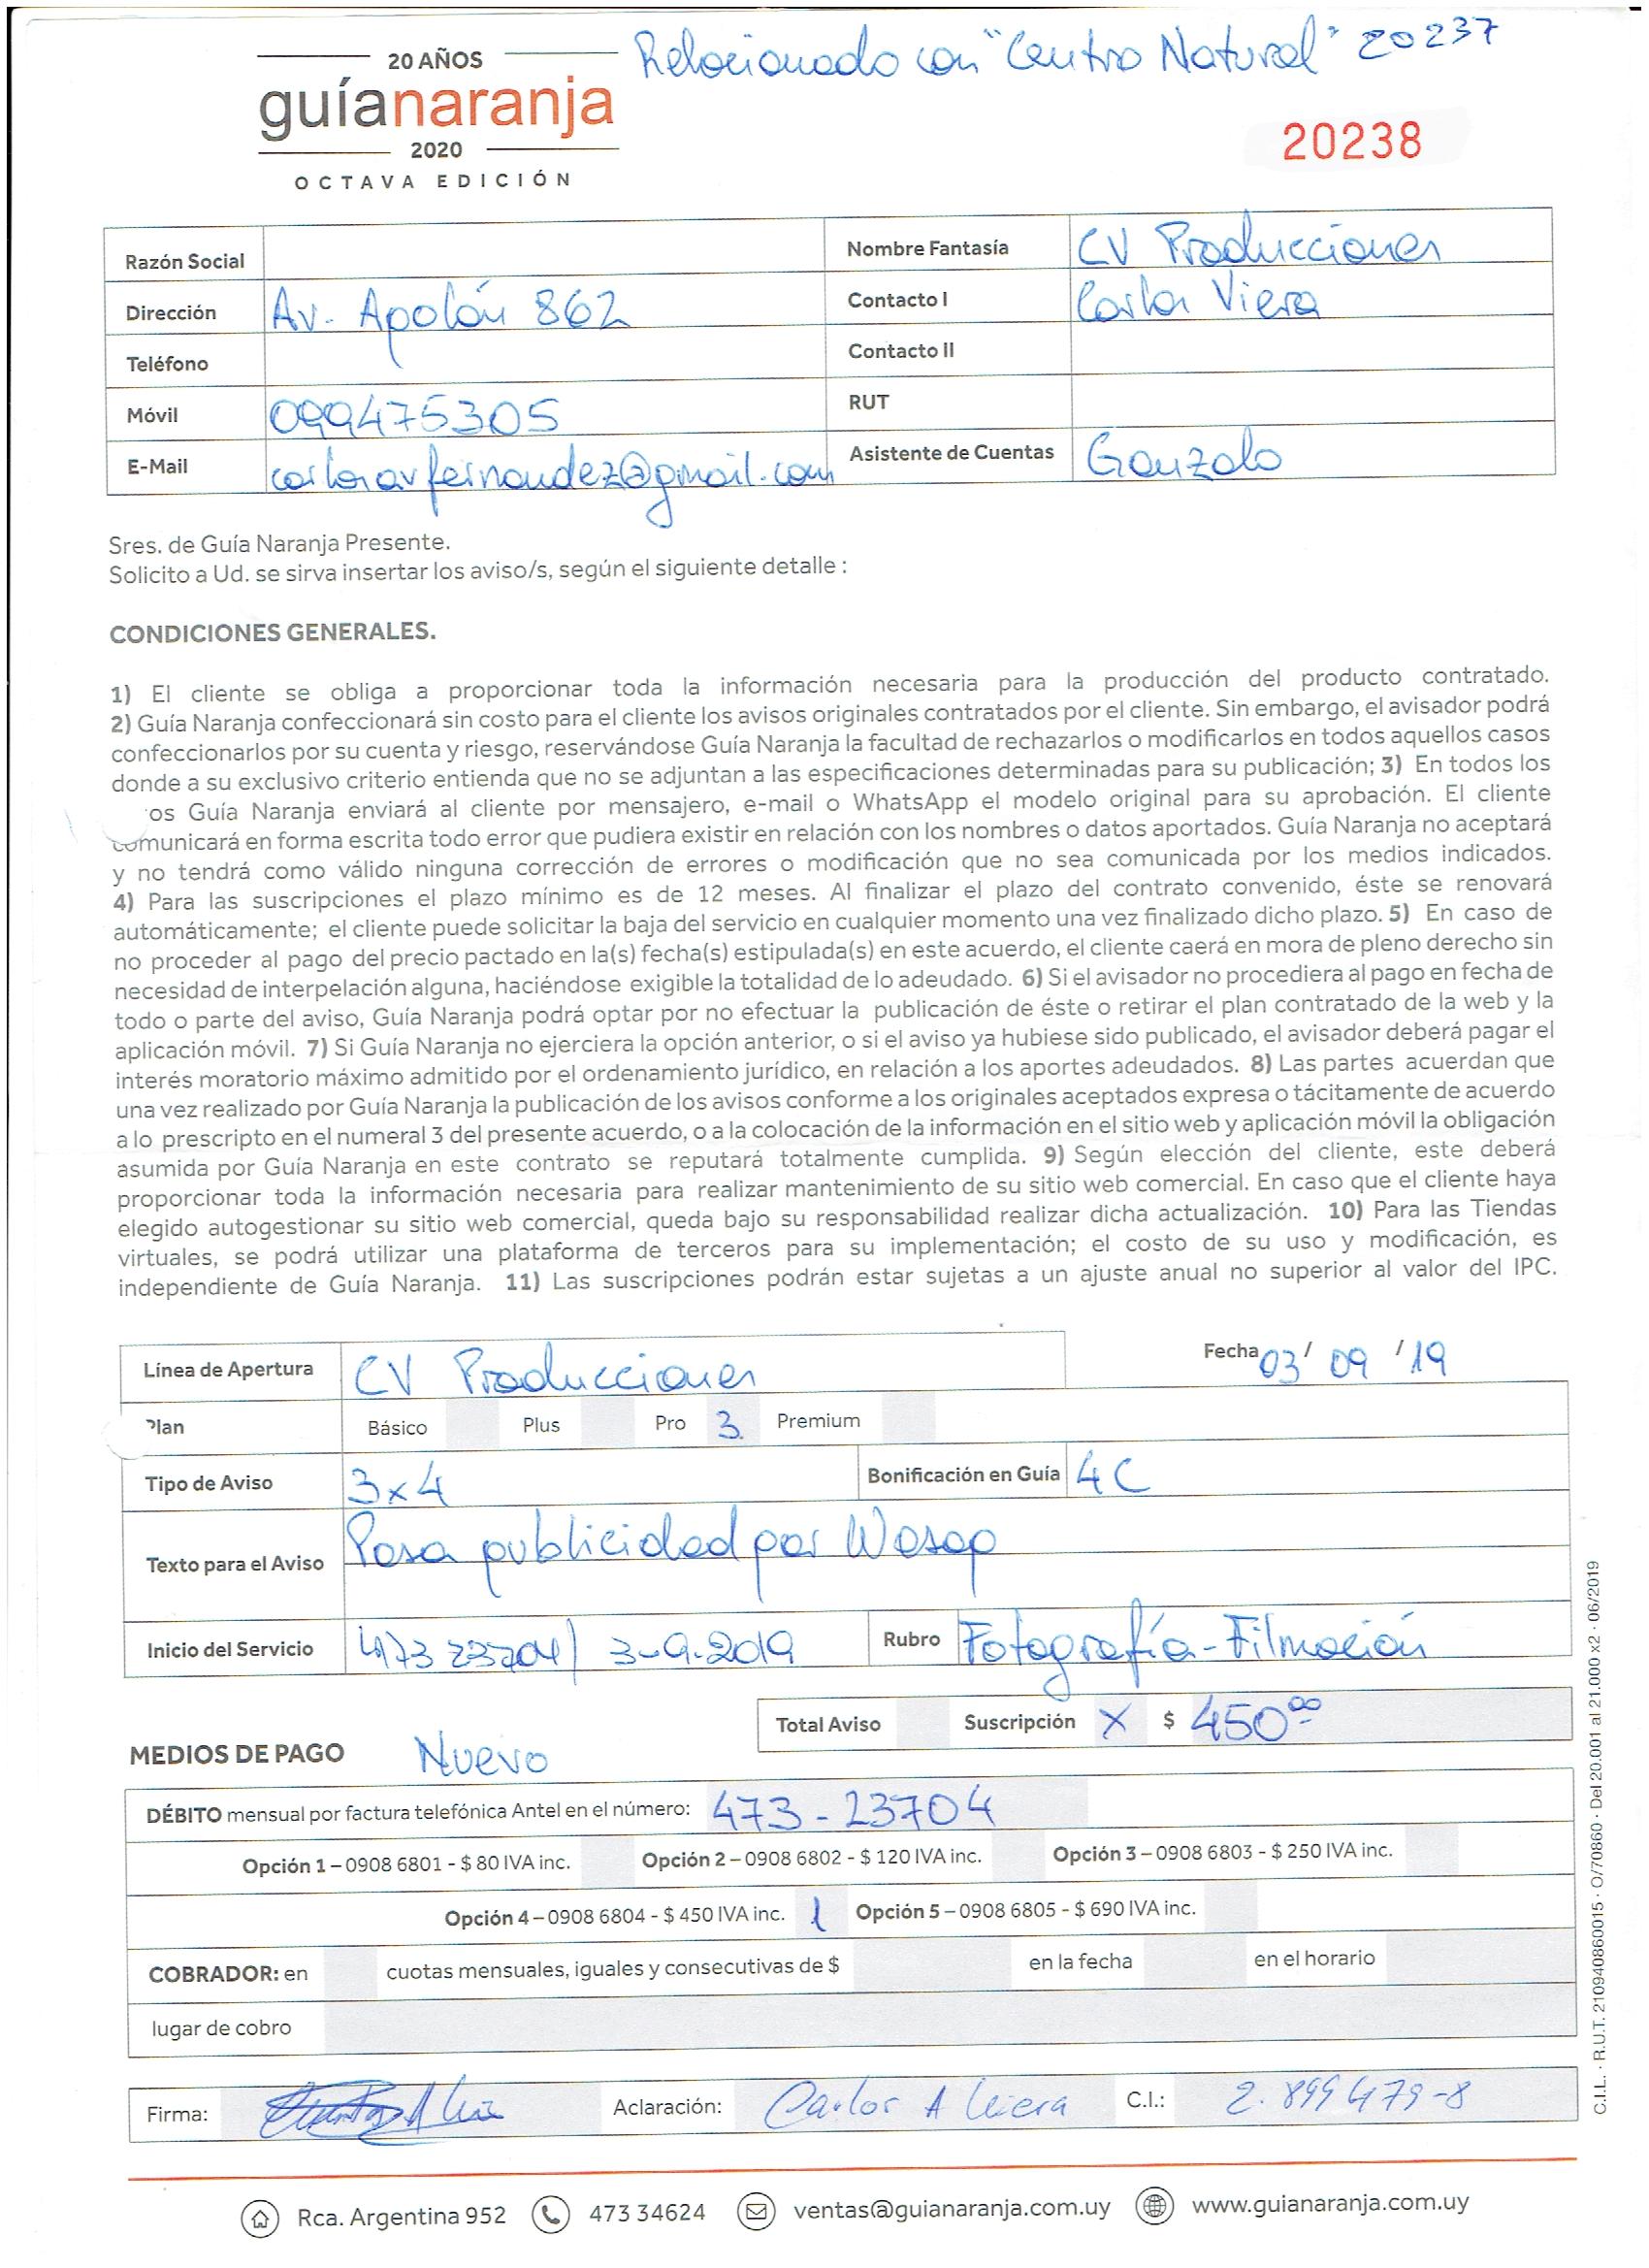 Relacionado con "Centro Natural" 20237
20 AÑOS
guíanaranja
2020
OCTAVA EDICIÓN
20238
Razón Social
Nombre Fantasía CV Producciones
Dirección Av. Apolón 862
Contacto I Carlos Viera
Teléfono
Contacto II
Móvil 099475305
RUT
E-Mail carlosavfernandez@gmail.com
Asistente de Cuentas Gonzalo
Sres. de Guía Naranja Presente.
Solicito a Ud. se sirva insertar los aviso/s, según el siguiente detalle :
CONDICIONES GENERALES.
1) El cliente se obliga a proporcionar toda la información necesaria para la producción del producto contratado.
2) Guía Naranja confeccionará sin costo para el cliente los avisos originales contratados por el cliente. Sin embargo, el avisador podrá
confeccionarlos por su cuenta y riesgo, reservándose Guía Naranja la facultad de rechazarlos o modificarlos en todos aquellos casos
donde a su exclusivo criterio entienda que no se adjuntan a las especificaciones determinadas para su publicación; 3) En todos los
os Guía Naranja enviará al cliente por mensajero, e-mail o WhatsApp el modelo original para su aprobación. El cliente
comunicará en forma escrita todo error que pudiera existir en relación con los nombres o datos aportados. Guía Naranja no aceptará
y no tendrá como válido ninguna corrección de errores o modificación que no sea comunicada por los medios indicados.
4) Para las suscripciones el plazo mínimo es de 12 meses. Al finalizar el plazo del contrato convenido, éste se renovará
automáticamente; el cliente puede solicitar la baja del servicio en cualquier momento una vez finalizado dicho plazo. 5) En caso de
no proceder al pago del precio pactado en la(s) fecha(s) estipulada(s) en este acuerdo, el cliente caerá en mora de pleno derecho sin
necesidad de interpelación alguna, haciéndose exigible la totalidad de lo adeudado. 6) Si el avisador no procediera al pago en fecha de
todo o parte del aviso, Guía Naranja podrá optar por no efectuar la publicación de éste o retirar el plan contratado de la web y la
aplicación móvil. 7) Si Guía Naranja no ejerciera la opción anterior, o si el aviso ya hubiese sido publicado, el avisador deberá pagar el
interés moratorio máximo admitido por el ordenamiento jurídico, en relación a los aportes adeudados. 8) Las partes acuerdan que
una vez realizado por Guía Naranja la publicación de los avisos conforme a los originales aceptados expresa o tácitamente de acuerdo
a lo prescripto en el numeral 3 del presente acuerdo, o a la colocación de la información en el sitio web y aplicación móvil la obligación
asumida por Guía Naranja en este contrato se reputará totalmente cumplida. 9) Según elección del cliente, este deberá
proporcionar toda la información necesaria para realizar mantenimiento de su sitio web comercial. En caso que el cliente haya
elegido autogestionar su sitio web comercial, queda bajo su responsabilidad realizar dicha actualización. 10) Para las Tiendas
virtuales, se podrá utilizar una plataforma de terceros para su implementación; el costo de su uso y modificación, es
independiente de Guía Naranja. 11) Las suscripciones podrán estar sujetas a un ajuste anual no superior al valor del IPC.
Línea de Apertura CV Producciones
Fecha 03/ 09 /19
Plan Básico Plus Pro 3 Premium
Tipo de Aviso 3x4 Bonificación en Guía 4C
Texto para el Aviso Pasa publicidad por Wasap
Inicio del Servicio 473 23704/ 3-9-2019 Rubro Fotografía-Filmación
Total Aviso Suscripción X $ 450⁰⁰
MEDIOS DE PAGO Nuevo
DÉBITO mensual por factura telefónica Antel en el número: 473-23704
Opción 1 – 0908 6801 - $ 80 IVA inc. Opción 2 – 0908 6802 - $ 120 IVA inc. Opción 3 – 0908 6803 - $ 250 IVA inc.
Opción 4 – 0908 6804 - $ 450 IVA inc. 1 Opción 5 – 0908 6805 - $ 690 IVA inc.
COBRADOR: en cuotas mensuales, iguales y consecutivas de $ en la fecha en el horario
lugar de cobro
Firma: Aclaración: Carlos A Viera C.I.: 2.899479-8
Rca. Argentina 952 473 34624 ventas@guianaranja.com.uy www.guianaranja.com.uy
C.I.L. · R.U.T. 210940860015 · O/70860 · Del 20.001 al 21.000 x2 · 06/2019